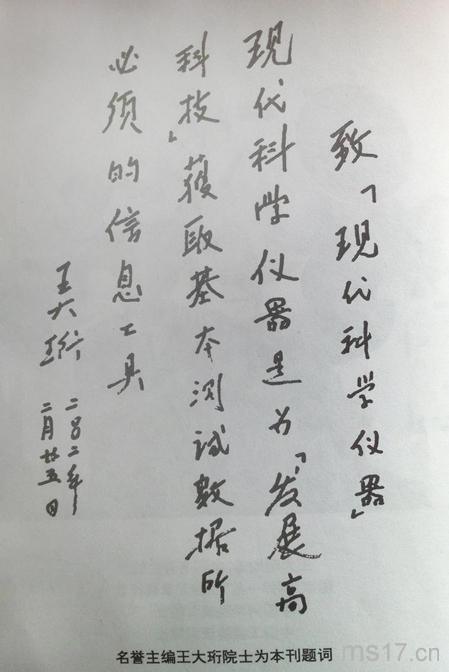 致「现代科学仪器」
现代科学仪器是为「发展高
科技」获取基本测试数据所
必须的信息工具
王大珩
二〇〇二年
二月廿五日
名誉主编王大珩院士为本刊题词
ms17.cn